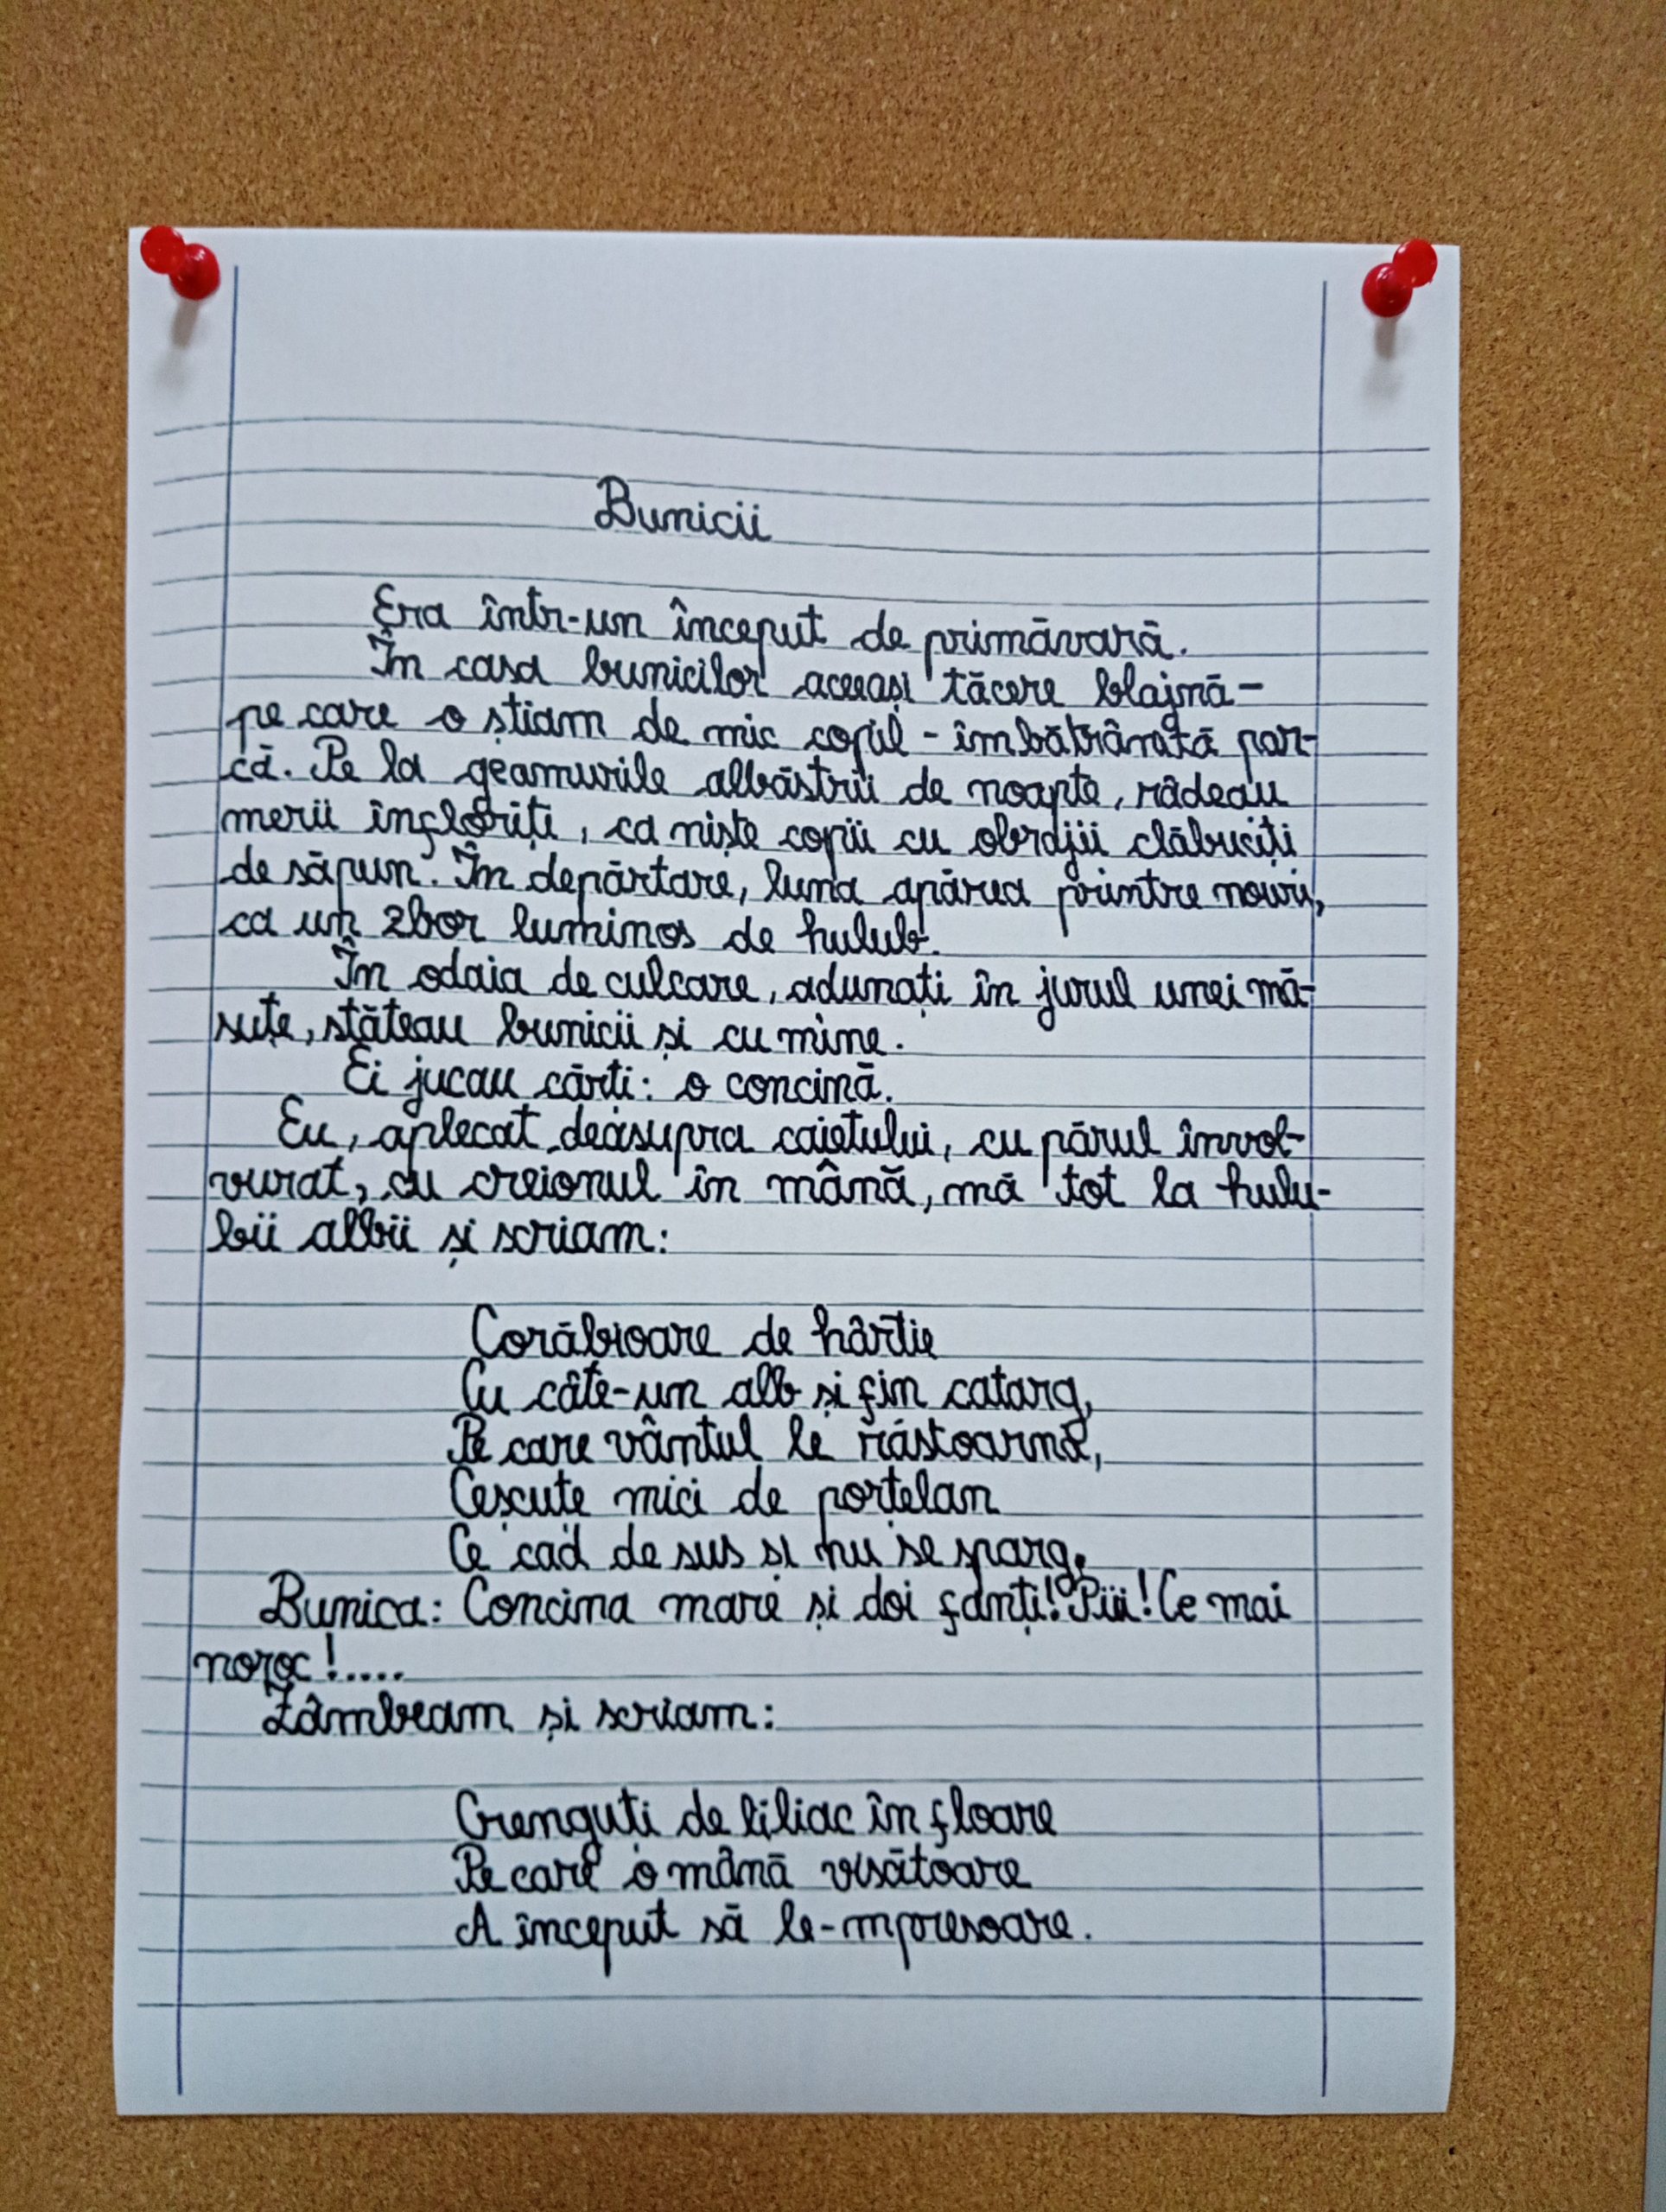 Bunicii
Era într-un început de primăvară.
În casa bunicilor aceeași tăcere blajină-
pe care o știam de mic copil - îmbătrânată par-
că. Pe la geamurile albăstrii de noapte, râdeau
merii înfloriți, ca niște copii cu obrajii clăbuciți
de săpun. În depărtare, luna apărea printre nouri,
ca un zbor luminos de hulub.
În odaia de culcare, adunați în jurul unei mă-
suțe, stăteau bunicii și cu mine.
Ei jucau cărti: o concină.
Eu, aplecat deasupra caietului, cu părul învol-
vurat, cu creionul în mână, mă tot la hulu-
bii albii și scriam:
Corăbioare de hârtie
Cu câte-un alb și fin catarg,
Pe care vântul le răstoarnă,
Ceșcuțe mici de porțelan
Ce cad de sus și nu se sparg.
Bunica: Concina mare și doi fanți! Piii! Ce mai
noroc!....
Zâmbeam și scriam:
Crenguți de liliac în floare
Pe care o mână visătoare
A început să le-mpresoare.